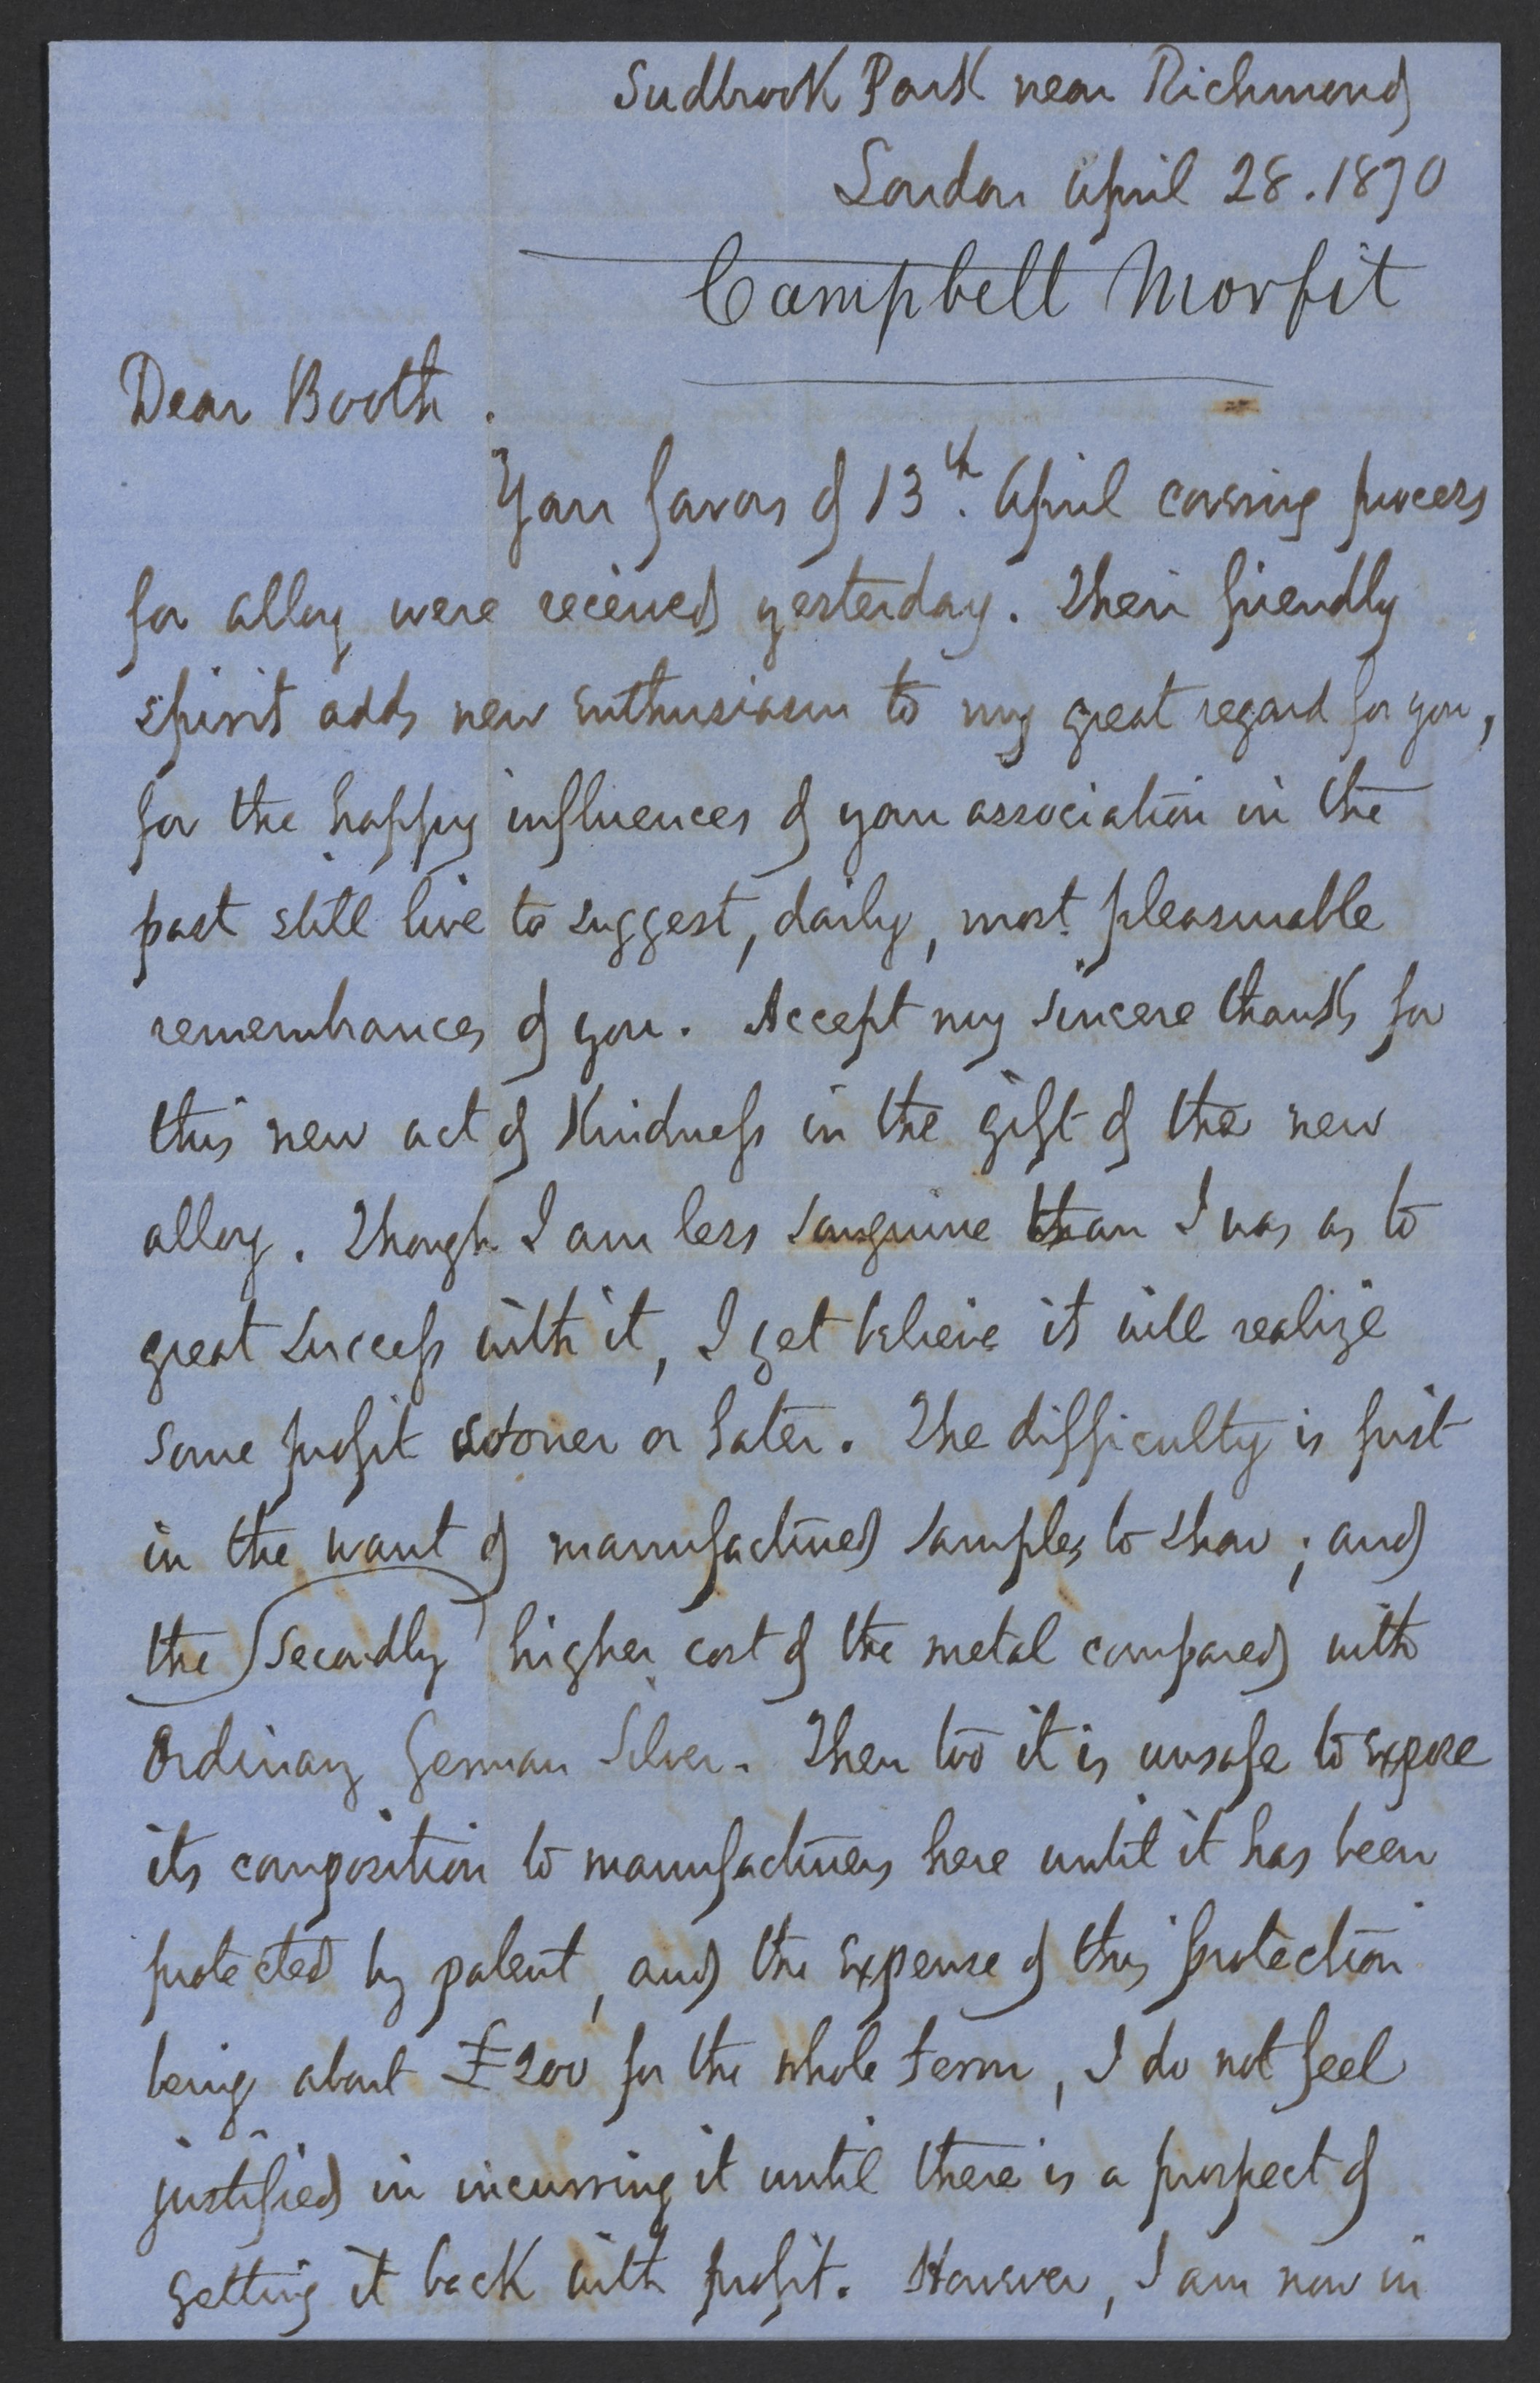 Sudbrook Park near Richmond
London April 28. 1870
Campbell Morfit
Dear Booth.
Your favors of 13th. April covering process
for alloy were received yesterday. Their friendly
spirit adds new enthusiasm to my great regard for you,
for the happy influences of your association in the
past still live to suggest, daily, most pleasurable
remembrances of you. Accept my sincere thanks for
this new act of Kindness in the gift of the new
alloy. Though I am less sanguine than I was as to
great success with it, I yet believe it will realize
some profit sooner or later. The difficulty is first
in the want of manufactured samples to show; and
the secondly higher cost of the metal compared with
ordinary German Silver. Then too it is unsafe to expose
its composition to manufacturers here until it has been
protected by patent, and the expense of this protection
being about £200 for the whole term, I do not feel
justified in incurring it until there is a prospect of
getting it back with profit. However, I am now in